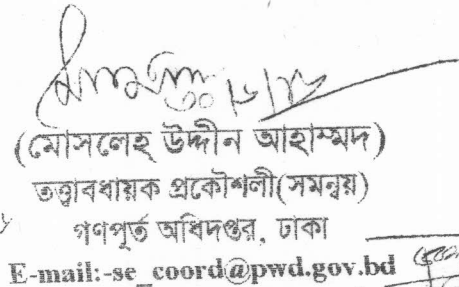 ৩০/৮/১৮
(মোসলেহ উদ্দীন আহাম্মদ)
তত্ত্বাবধায়ক প্রকৌশলী(সমন্বয়)
গণপূর্ত অধিদপ্তর, ঢাকা
E-mail:-se_coord@pwd.gov.bd